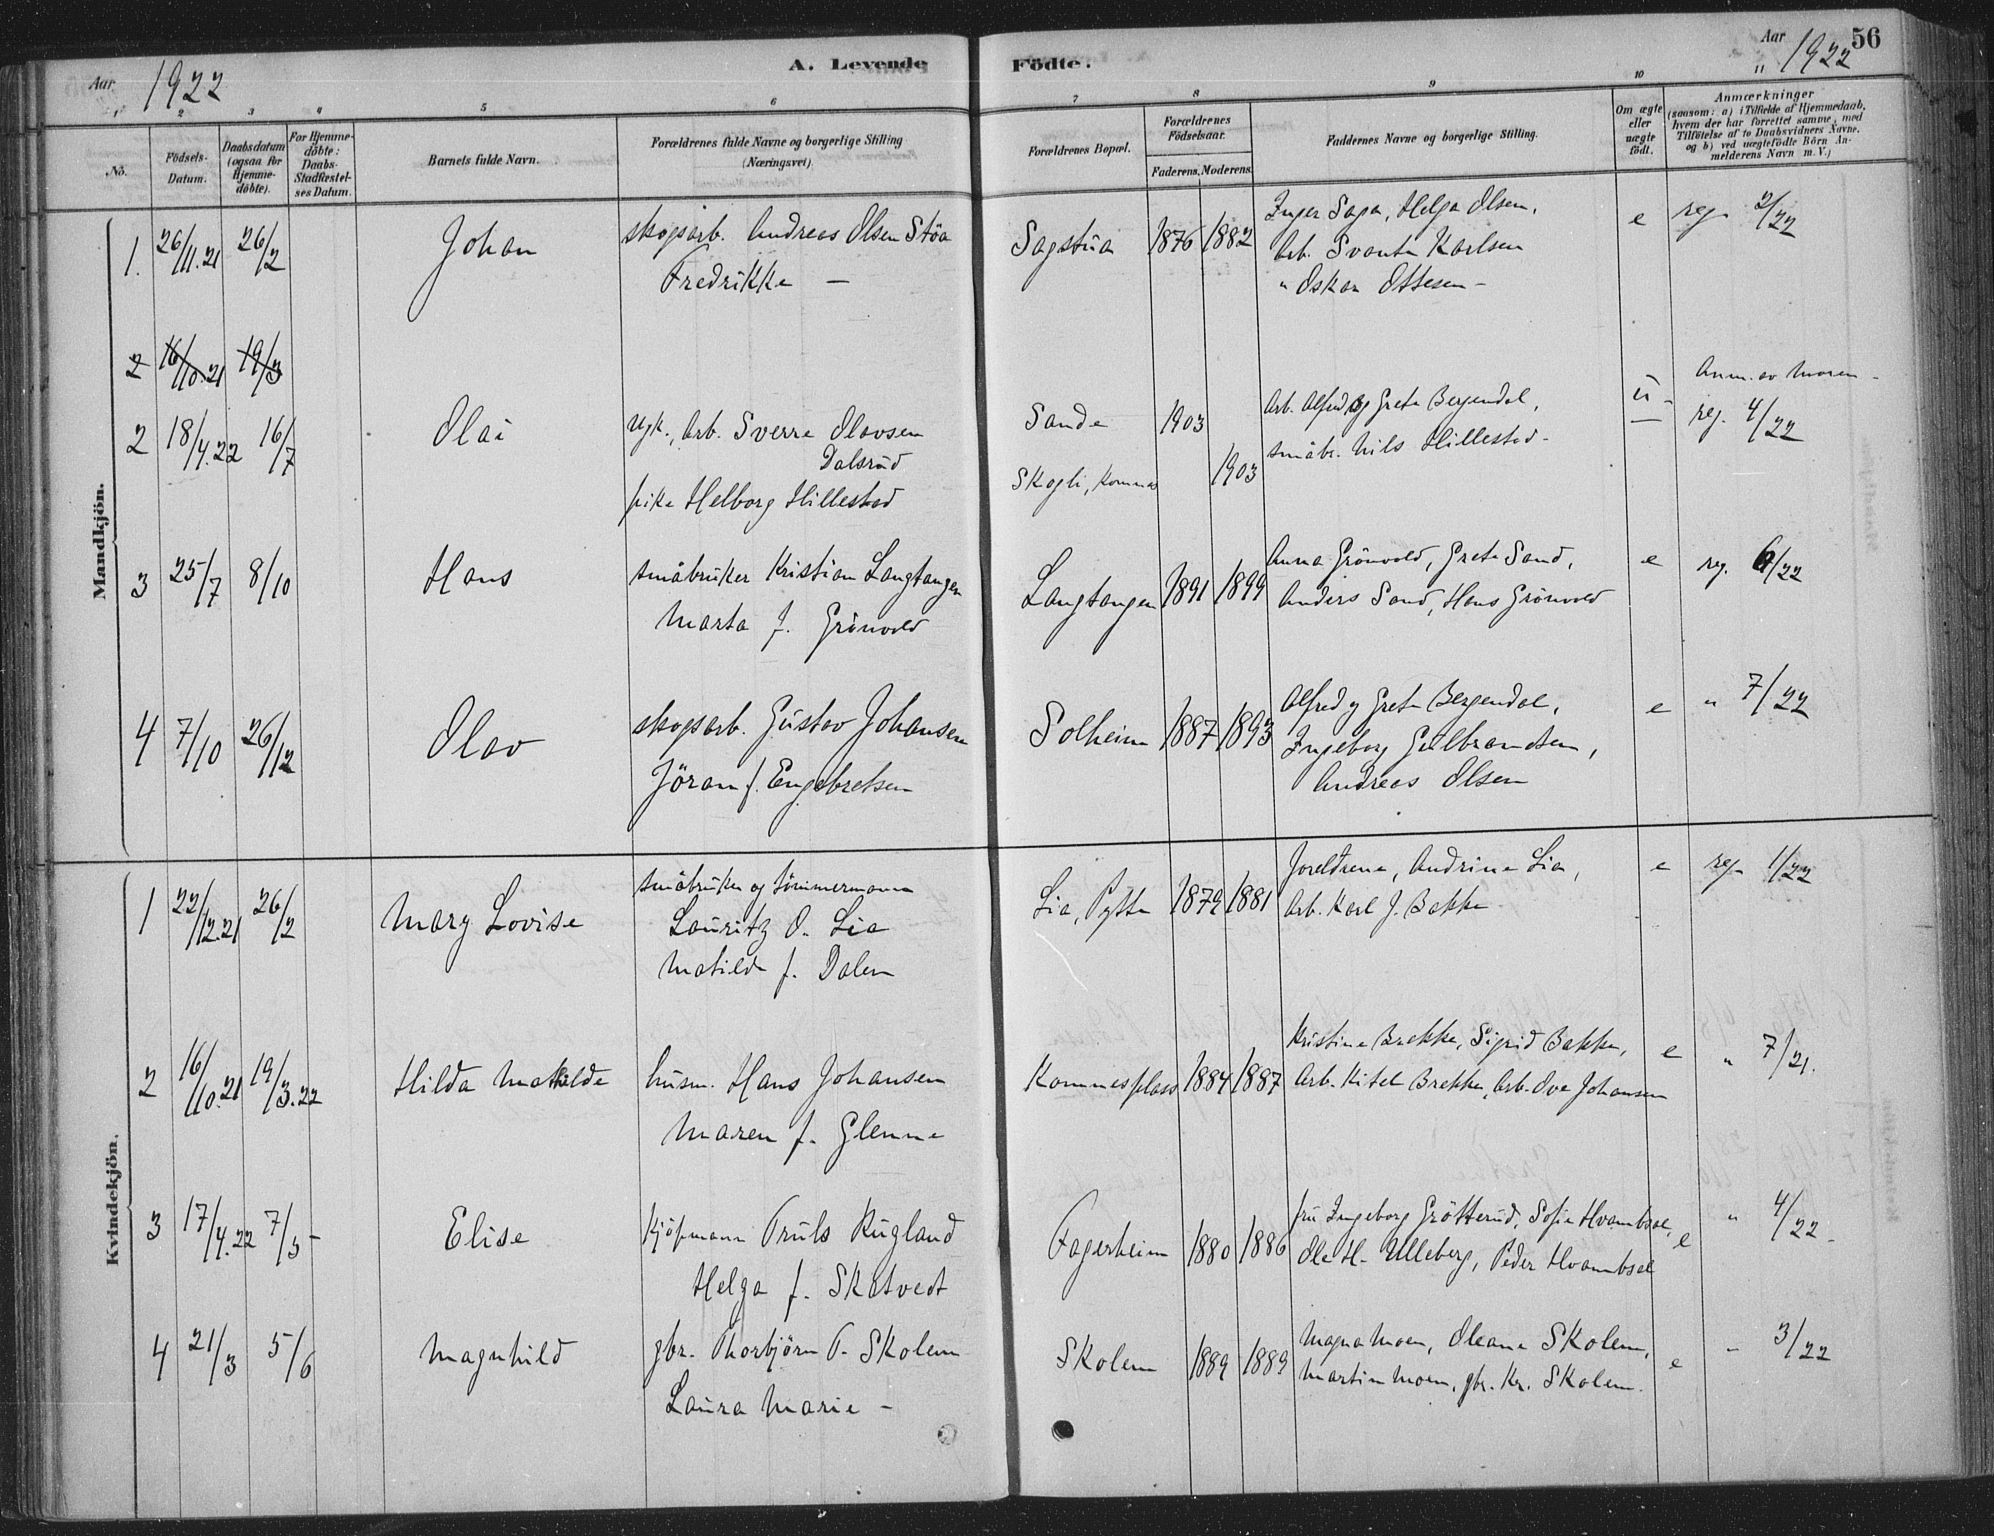 Aar 1922
A. Levende Födte.
Aar 1922
56
1 2 3 4 5 6 7 8 9 10 11
No.
Födsels-Datum.
Daabsdatum (ogsaa for Hjemme-döbte).
For Hjemme-döbte: Daabs-Stadfæstel-ses Datum.
Barnets fulde Navn.
Forældrenes fulde Navne og borgerlige Stilling (Næringsvei).
Forældrenes Bopæl.
Forældrenes Födselsaar.
Faderens. Moderens.
Faddernes Navne og borgerlige Stilling.
Om ægte eller uægte födt.
Anmærkninger
(saasom: a) i Tilfælde af Hjemmedaab, hvem der har forrettet samme, med Tilföielse af to Daabsvidners Navne, og b) ved uægtefödte Börn An-melderens Navn m. V.)
Mandkjön.
1. 26/11.21 26/2 Johan skogsarb. Andreas Olsen Stöa Sagstua 1876 1882 Inger Saga, Helga Olsen, e reg. 2/22
Fredrikke — Arb. Svante Karlsen
" Oskar Ottesen -
2 16/10.21 19/3
2 18/4.22 16/7 Olai Ugk., Arb. Sverre Olavsen Sande 1903 Arb. Alfred og Grete Bergendal, u - Anm. av moren -
Dalsrud småbr. Nils Hillestad - reg. 4/22
pike Helborg Hillestad Skogli, 1903
3 25/7 8/10 Hans småbruker Kristian Langtangen Langtangen 1891 1899 Anna Grönvold, Grete Sand, e reg. 6/22
Marta f. Grönvold Anders Sand, Hans Grönvold
4 7/10 26/12 Olav skogsarb. Gustav Johansen Solheim 1887 1893 Alfred og Grete Bergendal, e " 7/22
Jöran f. Engebretsen Ingeborg Gulbrandsen,
Andreas Olsen
Kvindekjön.
1 22/12.21 26/2 Mary Lovise småbruker og tömmermann Lia, Pytte 1879 1881 foreldrene, Andrine Lia, e reg. 1/22
Lauritz O. Lia Arb. Karl J. Bakke
Matilde f. Dalen
2 16/10.21 19/3.22 Hilda Mathilde husm. Hans Johansen Kommesplass 1884 1887 Kristine Brekke, Sigrid Bakken, e " 7/21.
Maren f. Glenne Arb. Kitel Brekke, Arb. Ove Johansen
3 17/4.22 7/5 - Elise kjöpmann Truls Rugland Fagerheim 1880 1886 fru Ingeborg Grötterud, Sofie Hvambsal, e " 4/22 -
Helga f. Skatvedt Ole H. Ulleberg, Peder Hvambsal
4 21/3 5/6 Magnhild gbr. Thorbjörn T. Skolem Skolem 1889 1889 Magna Moen, Oleane Skolem, e " 3/22
Laura Marie - Martin Moen, gbr. Kr. Skolem.